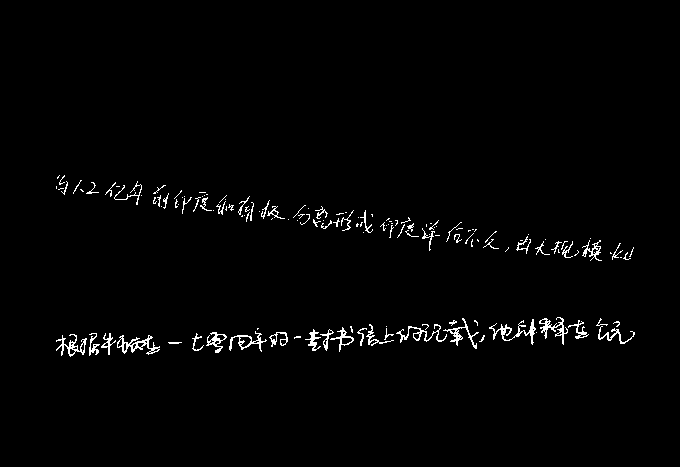 当1.2亿年前印度和南极分离形成印度洋后不久,由大规模
根据牛顿在一七零四年的一封书信上的记载,他解释在